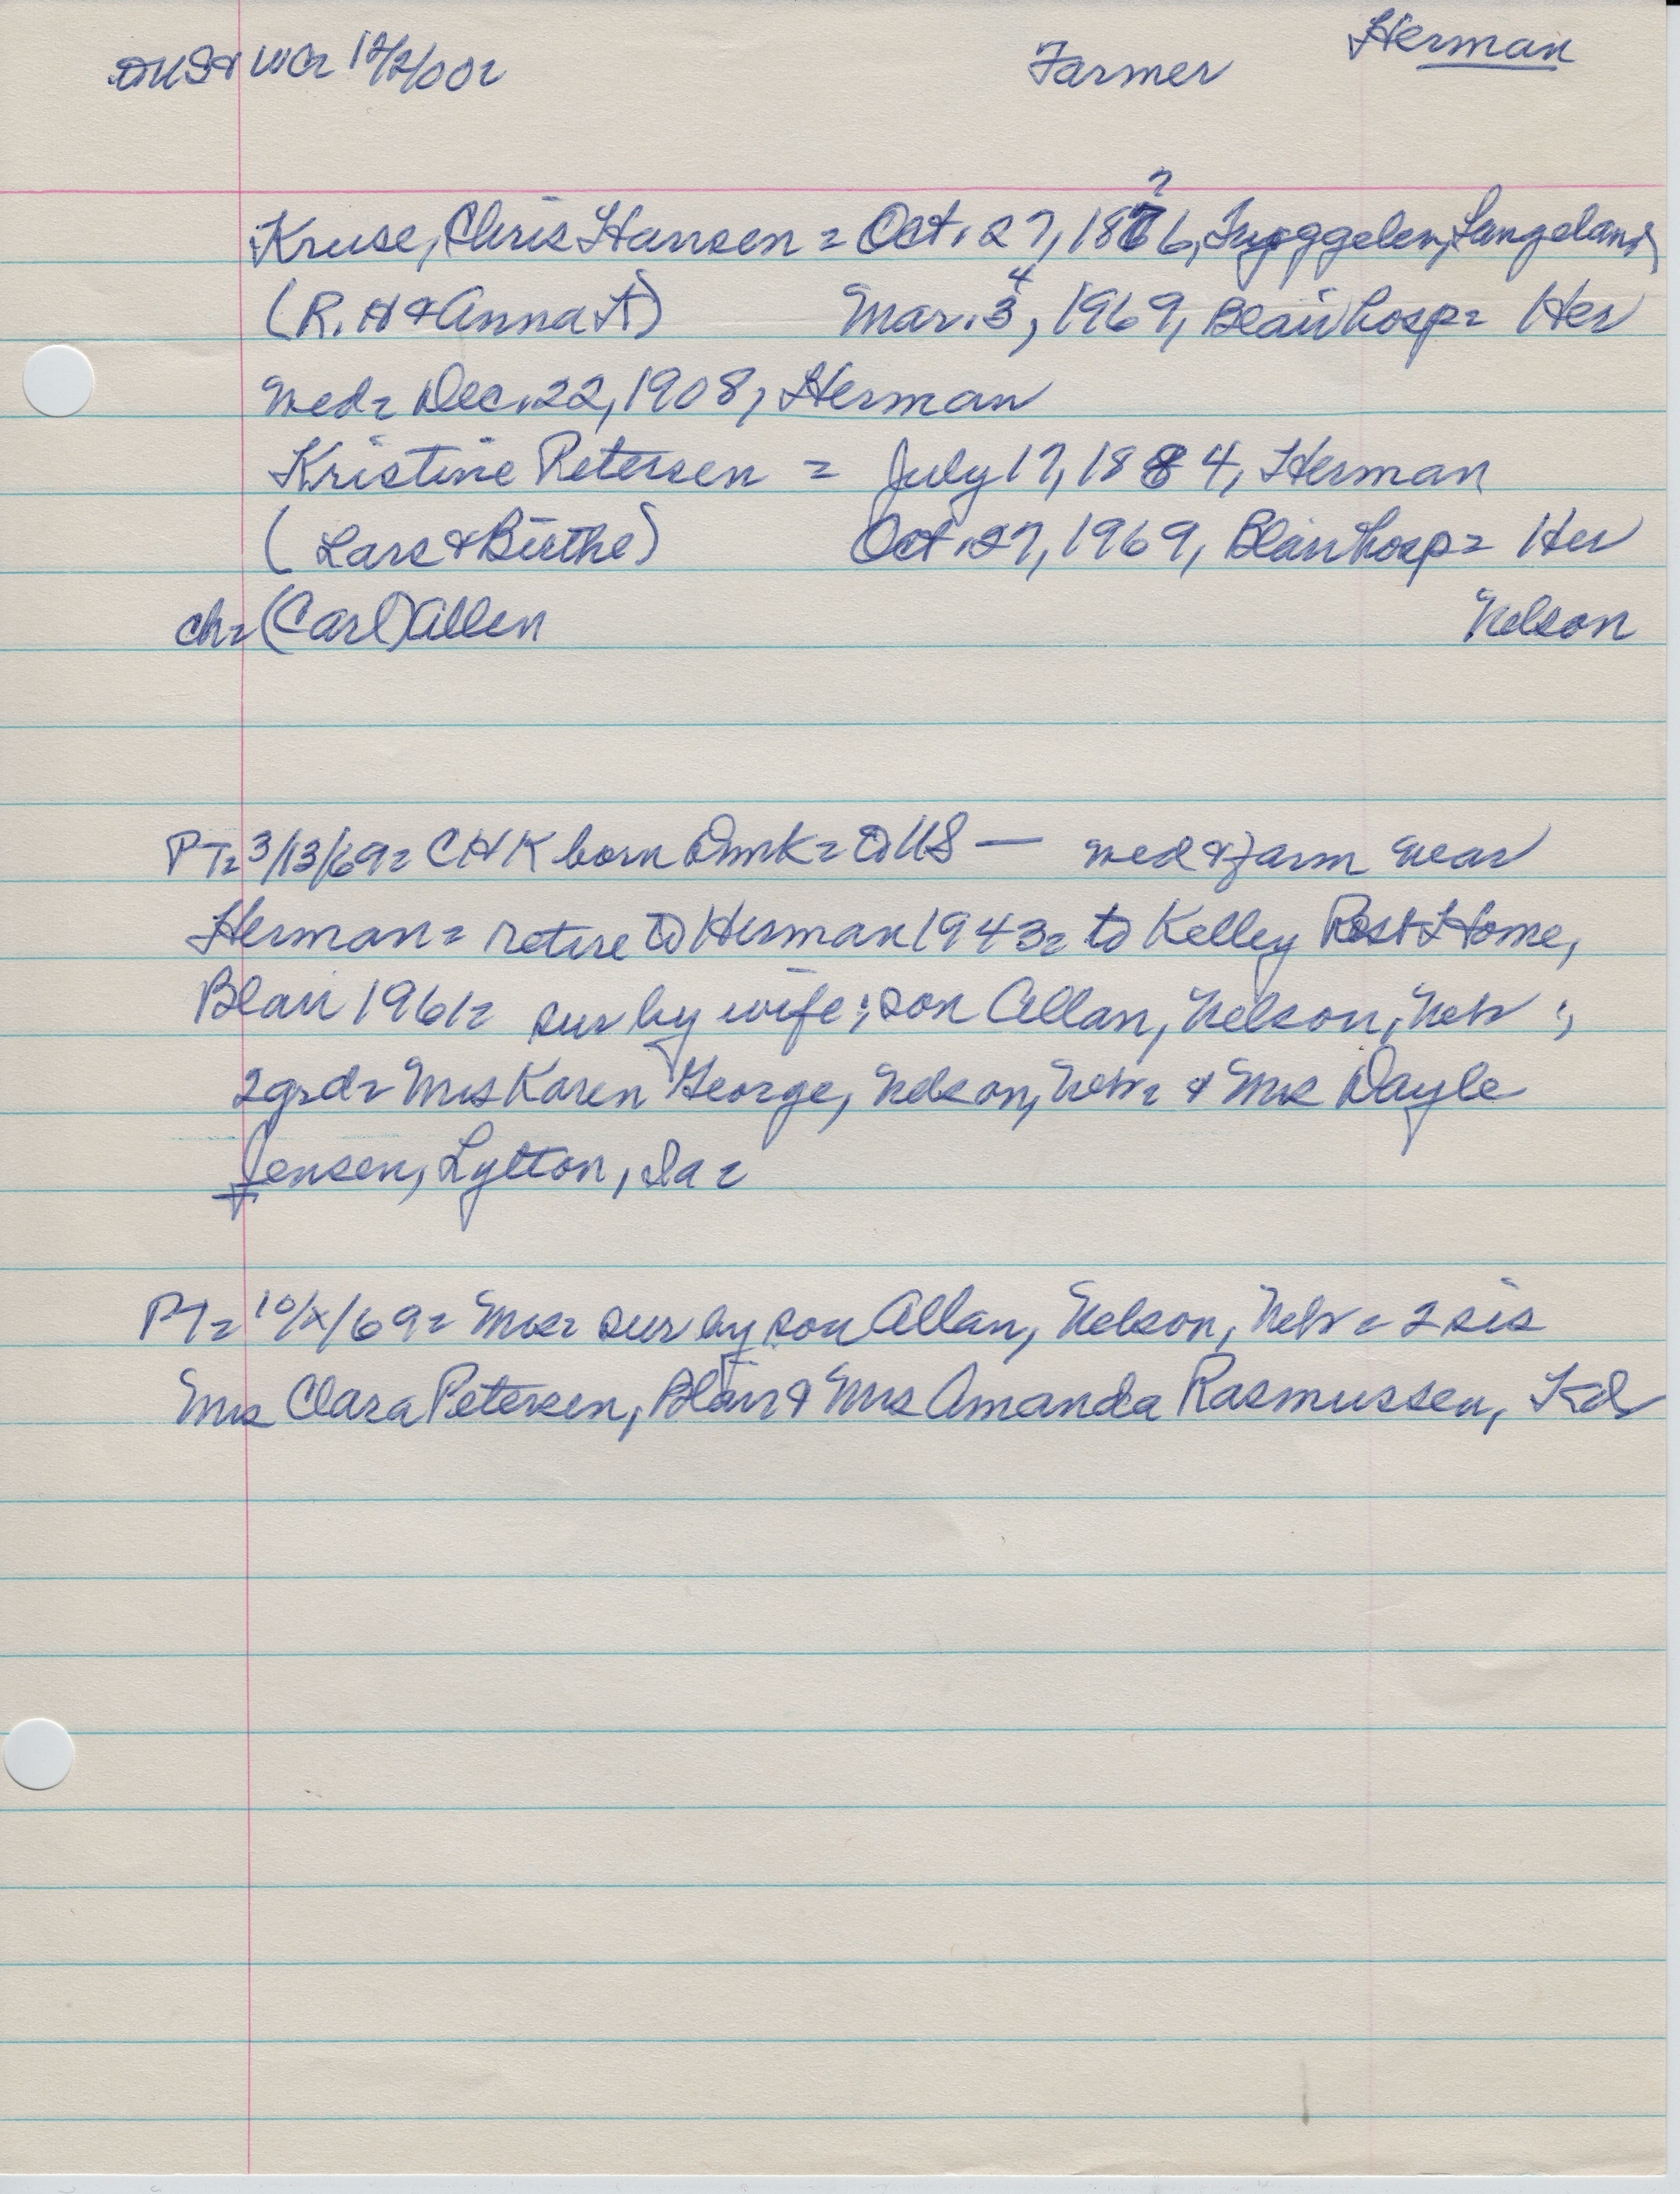 Farmer Herman
Kruse, Chris Hansen = Oct. 27, 1876, Langeland
?
(R. H & Anna K) Mar. 3, 1969, Blair hosp = Her
4
wed = Dec. 22, 1908, Herman
Kristine Petersen = July 17, 1884, Herman
(Lars & Birthe) Oct. 27, 1969, Blair hosp = Her
ch = (Carl) Allen Nelson
PT = 3/13/69 = CHK born Dmk = to US — wed & farm near
Herman = retire to Herman 1943 = to Kelley Rest Home,
Blair 1961 = sur by wife; son Allan, Nelson, Nebr;
2 grd = Mrs Karen George, Nelson, Nebr = & Mrs Dayle
Jensen, Lytton, Ia =
PT = 10/x/69 = Mrs = sur by son Allan, Nelson, Nebr = 2 sis
Mrs Clara Petersen, Blair & Mrs Amanda Rasmussen, Kd